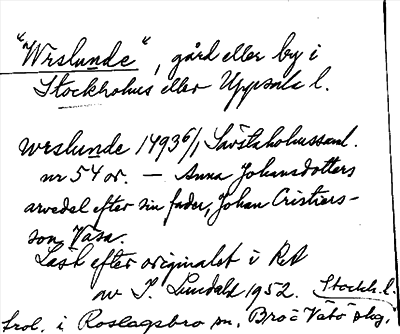 "Wrslunde", gård eller by i
Stockholms eller Uppsala l.
wrslunde 1493 6/1 Sävstaholmssaml.
nr 54 or. — Anna Johansdotters
arvedel efter sin fader, Johan Cristiers-
son Vasa.
Läst efter originalet i RA
av J. Liedgren 1952. Stockh. l.
trol. i Roslagsbro sn, Bro o Vätö skg.